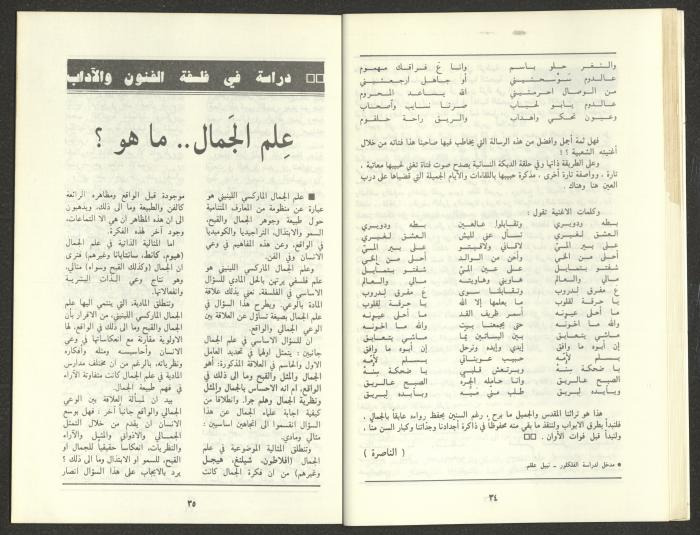 والثغر حلو باسم وانا ع فراقك مهموم
عالدوم سَوْسحتيني أو جاهل ارجعتيني
من الوصال احرمتيني الله يساعد المحروم
عالدوم يابو لحباب صرنا نسايب وأصحاب
وعيون تحكي واهداب والريق راحة حلقوم
فهل ثمة أجمل وافضل من هذه الرسالة التي يخاطب فيها صاحبنا هذا فتاته من خلال
أغنيته الشعبية ؟ !
وعلى الطريقة ذاتها وفي حلقة الدبكة النسائية يصدح صوت فتاة تغني لحبيبها معاتبة ،
تارة ، وواصفة تارة أخرى . مذكرة حبيبها باللقاءات والأيام الجميلة التي قضياها على درب
العين هنا وهناك .
وكلمات الاغنية تقول :
بـطه ودويري وتقابلوا عالعين بـطه ودويري
العشق لخيري تسأل عني لليش العشق لخيري
على بير الميّ لاقاني ولاقيتو على بير الميّ
أحلى من الخي وأحن من الوالد أحلى من الخي
شفتو يتمايل على عين الميّ شفتو بتمايل
مالي والعالم هاويني وهاويته مالي والعالم
ع مفرق لدروب وتقابلنا سوى ع مفرق لدروب
يا حرقة لقلوب ما يعلمها إلا الله يا حرقة لقلوب
ما أحلى عيونه أسمر ظريف القد ما أحلى عيونه
والله ما اخونه حتى يجمعنا بيت والله ما اخونه
ماشي يتعايق بين البساتين يما ماشي بتعايق
إن أبوه ما وافق إيدي وإيده ونرحل إن أبوه ما وافق
يسلم لإمّه حبيب عيونياتي يسلم لإمّه
يا ضحكة بسنة وبرتعش قلبي يا ضحكة بسنة
الصبح عالريق وانا حاملة الجره الصبح عالريق
وبأيده لبريق طلب مني ميه وبأيده لبريق
هذا هو تراثنا المقدس والجميل ما برح ، رغم السنين يحفظ رواءه عابقاً بالجمال ,
فلنبدأ بطرق الابواب ولننقذ ما بقي منه محفوظاً في ذاكرة أجدادنا وجدّاتنا وكبار السن منا ,
ولنبدأ قبل فوات الأوان .
( الناصرة )
● مدخل لدراسة الفلكلور ـ نبيل علقم
٣٤
دراسة في فلسفة الفنون والآداب
عِلم الجَمال.. ما هو ؟
■ علم الجمال الماركسي اللينيني هو
عبارة عن منظومة من المعارف المتنامية
حول طبيعة وجوهر الجمال والقبح،
السمو والابتذال، التراجيديا والكوميديا
في الواقع، وعن هذه المفاهيم في وعي
الانسان وفي الفن.
وعلم الجمال الماركسي اللينيني هو
علم فلسفي يرتهن بالحل المادي للسؤال
الأساسي في الفلسفة. نعني بذلك علاقة
المادة بالوعي. ويطرح هذا السؤال في
علم الجمال بصيغة تساؤل عن العلاقة بين
الوعي الجمالي والواقع.
ان للسؤال الاساسي في علم الجمال
جانبين : يتمثل اولها في تحديد العامل
الاول والحاسم في العلاقة المذكورة: أهو
الجمال والمثل والقبح وما الى ذلك في
الواقع، ام انه الاحساس بالجمال والمثل
ونظرية الجمال وهلم جرا. وانطلاقا من
كيفية اجابة علماء الجمال عن هذا
السؤال انقسموا الى اتجاهين اساسيين :
مثالي ومادي.
وتنطلق المثالية الموضوعية في علم
الجمال (افلاطون، شيلنغ، هيجل
وغيرهم) من ان فكرة الجمال كانت
موجودة قبل الواقع ومظاهره الرائعة
كالفن والطبيعة وما الى ذلك. ويذهبون
الى ان هذه المظاهر ان هي الا التماعات،
وجود آخر لهذه الفكرة.
اما المثالية الذاتية في علم الجمال
(هيوم، كانط، سانتايانا وغيرهم) فترى
ان الجمال (وكذلك القبح وسواه) مثالي،
وهو نتاج وعي الذات البشرية
وانفعالاتها.
وتنطلق المادية، التي ينتمي اليها علم
الجمال الماركسي اللينيني، من الاقرار بأن
الجمال والقبح وما الى ذلك في الواقع، لها
الاولوية مقارنة مع انعكاساتها في وعي
الانسان وأحاسيسه ومثله وأفكاره
ونظرياته. بالرغم من ان مختلف مدارس
المادية في علم الجمال كانت متفاوتة الآراء
في فهم طبيعة الجمال.
بيد ان لمسألة العلاقة بين الوعي
الجمالي والواقع جانباً آخر : فهل بوسع
الانسان ان يقدم من خلال التمثل
الجمالي والاذواني والمثيل والآراء
والنظريات، انعكاساً حقيقياً للجمال او
القبح، للسمو او الابتذال وما الى ذلك ؟
يرد بالايجاب على هذا السؤال انصار
٣٥